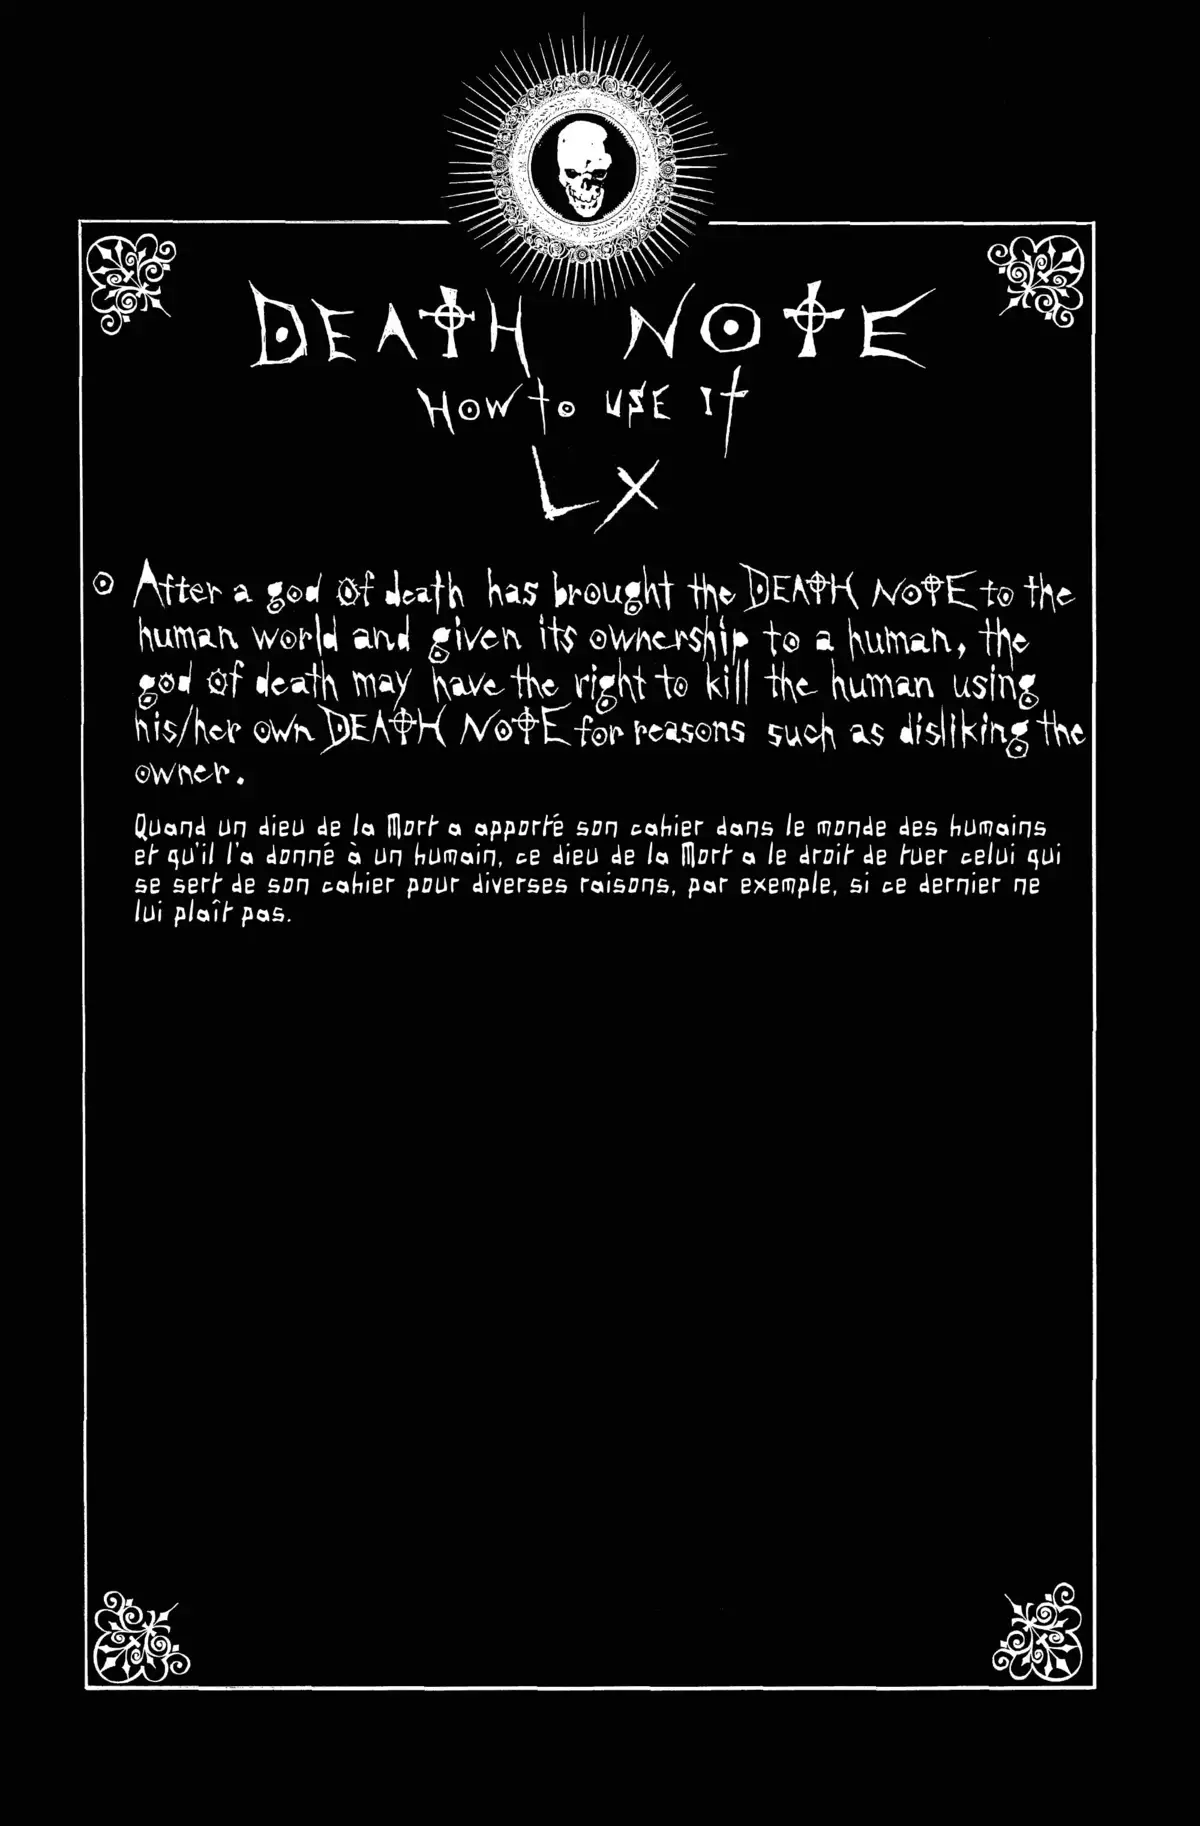 DEATH NOTE
HOW to USE It
LX
After a god of death has brought the DEATH NOTE to the
human world and given its ownership to a human, the
god of death may have the right to kill the human using
his/her own DEATH NOTE for reasons such as disliking the
owner.
Quand un dieu de la Mort a apporté son cahier dans le monde des humains
et qu'il l'a donné à un humain, ce dieu de la Mort a le droit de tuer celui qui
se sert de son cahier pour diverses raisons, par exemple, si ce dernier ne
lui plaît pas.